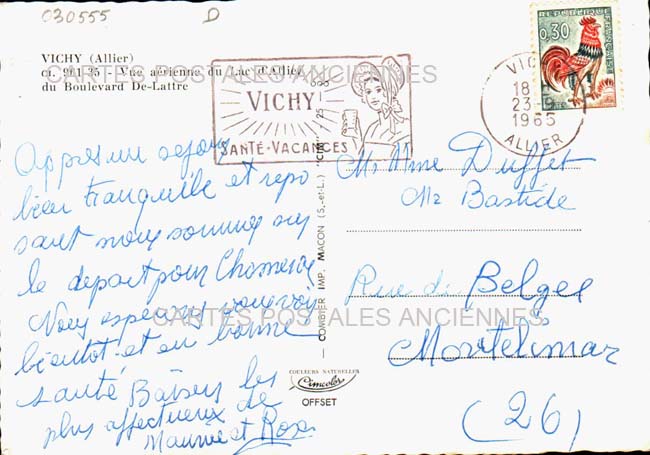 030555 D
VICHY (Allier)
ca. 981-35 - Vue aérienne du Lac d'Allier
du Boulevard De-Lattre
CARTES POSTALES ANCIENNES
VICHY
SANTÉ-VACANCES
0,30
REPUBLIQUE FRANÇAISE
VICHY
18
23
1965
ALLIER
Appres un sejour
bien tranquile et repo
sant nous sommes sur
le depart pour Chomerac
Nous esperons vous voir
bientot et en bonne
santé Baisers les
plus affectueux de
Maurice et Rosa
COMBIER IMP. MACON (S.-et-L.) "CIM"
COULEURS NATURELLES
Cimcolor
OFFSET
Mr Mme Duffet
Mr Bastide
Rue des Belges
CARTES POSTALES ANCIENNES
Montelimar
(26)